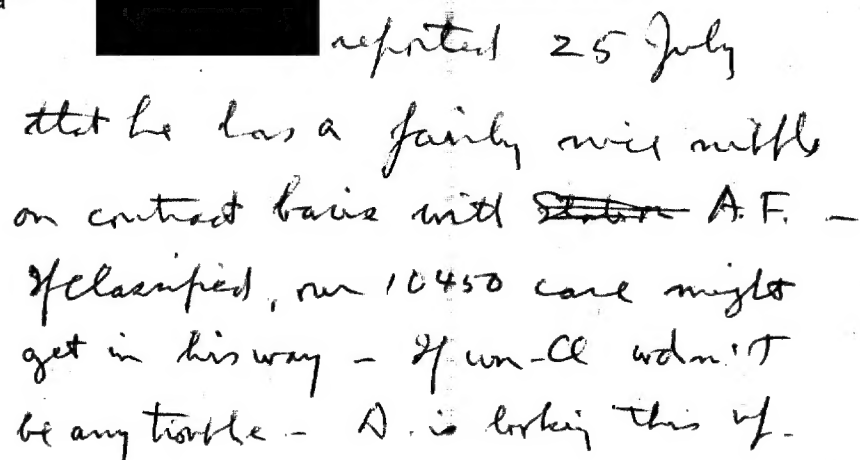 reported 25 July
that he has a fairly nice nibble
on contract basis with Station A.F. –
If classified, our 10450 case might
get in his way – If un-Cl wdn't
be any trouble – D. is looking this up.